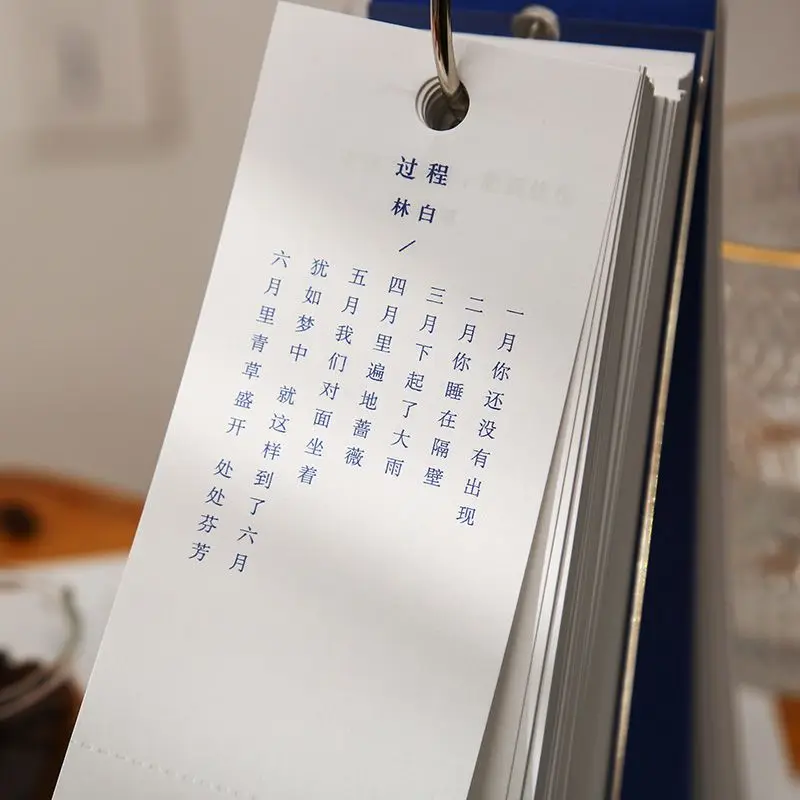 过程
林白
/
一月你还没有出现
二月你睡在隔壁
三月下起了大雨
四月里遍地蔷薇
五月我们对面坐着
犹如梦中 就这样到了六月
六月里青草盛开 处处芬芳